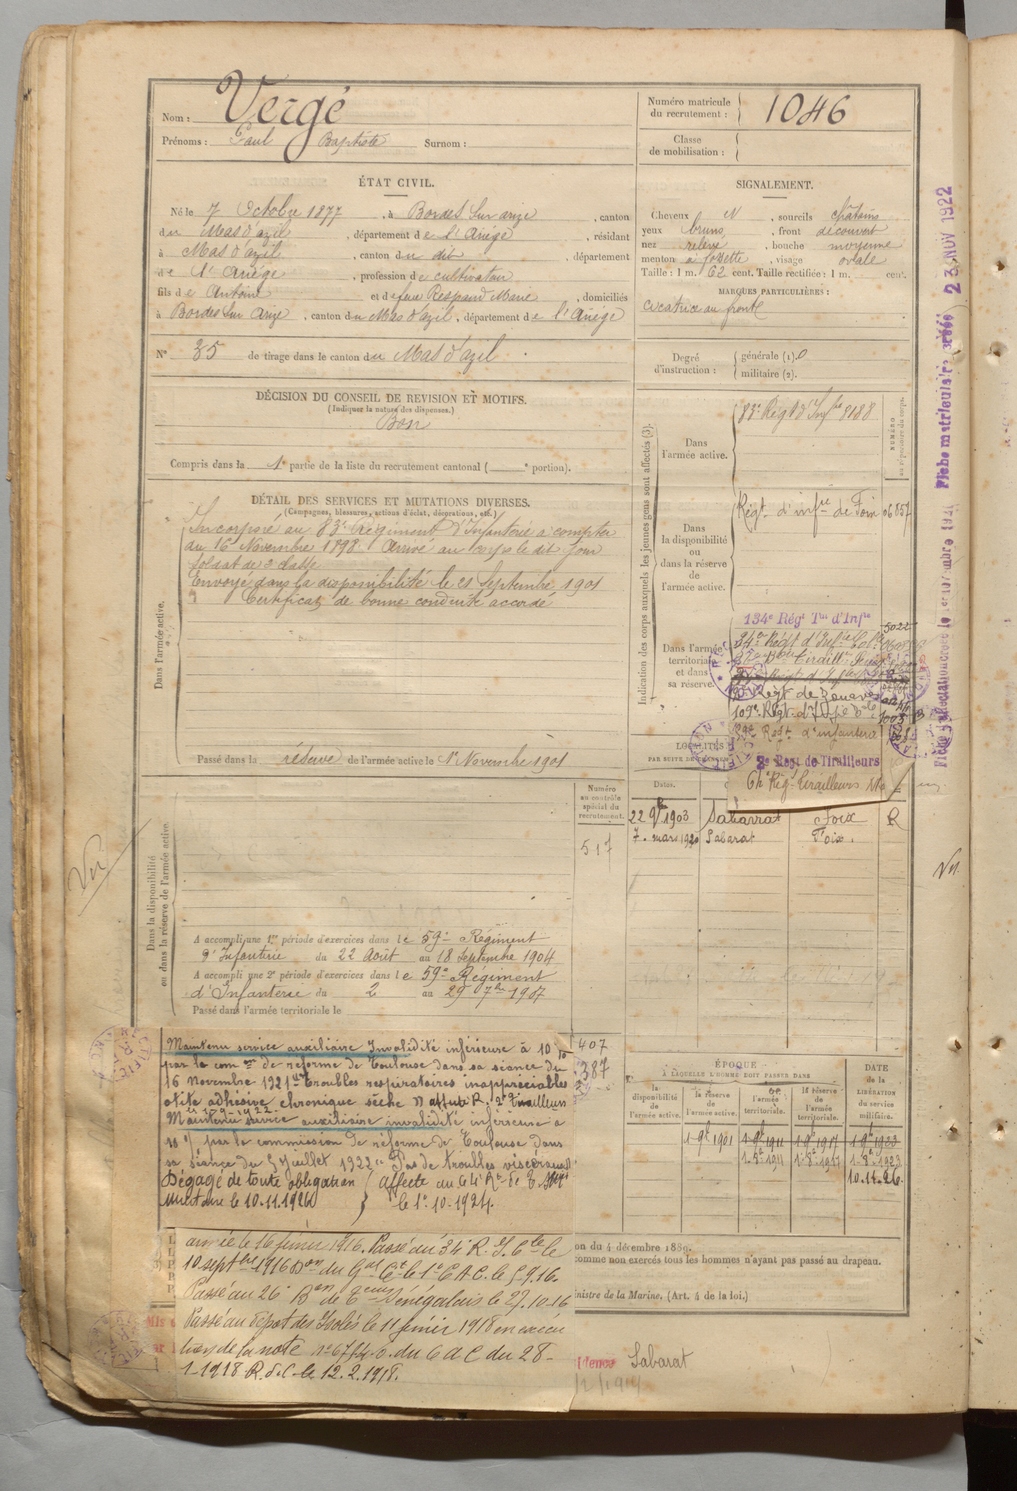 Nom : Vergé
Prénoms : Paul Baptiste Surnom :
Numéro matricule du recrutement : 1046
Classe de mobilisation :
ÉTAT CIVIL.
Né le 7 Octobre 1877, à Bordes sur arize, canton
du Mas d'azil, département de l'Ariège, résidant
à Mas d'azil, canton du dit, département
de l'Ariège, profession de cultivateur
fils de Antoine et de feue Respaud Marie, domiciliés
à Bordes sur Arize, canton du Mas d'azil, département de l'Ariège
N° 35 de tirage dans le canton du Mas d'azil.
SIGNALEMENT.
Cheveux N, sourcils châtains
yeux bruns, front découvert
nez relevé, bouche moyenne
menton à fossette, visage ovale
Taille : 1 m. 62 cent. Taille rectifiée : 1 m. cent.
MARQUES PARTICULIÈRES :
cicatrice au front
Degré d'instruction : générale (1). 0
militaire (2).
DÉCISION DU CONSEIL DE REVISION ET MOTIFS.
(Indiquer la nature des dispenses.)
Bon
Compris dans la 1e partie de la liste du recrutement cantonal ( e portion).
DÉTAIL DES SERVICES ET MUTATIONS DIVERSES.
(Campagnes, blessures, actions d'éclat, décorations, etc.)
Dans l'armée active.
Incorporé au 83e Régiment d'Infanterie à compter
du 16 Novembre 1898. Arrivé au corps le dit jour
soldat de 2 classe
Envoyé dans la disponibilité le 21 Septembre 1901
Certificat de bonne conduite accordé
Passé dans la réserve de l'armée active le 1er Novembre 1901
Indication des corps auxquels les jeunes gens sont affectés (3).
NUMÉRO au répertoire du corps.
Dans l'armée active.
83e Régt d'Infie 8188
Dans la disponibilité ou dans la réserve de l'armée active.
Régt d'infie de Foix 06857
Dans l'armée territoriale et dans sa réserve.
134e Régt Tal d'Infie
5022
34e Régt d'Infie Cole
Régt de Zouaves
109e Régt d'Infie
Regt d'infanterie
2e Regt de Tirailleurs
64e Rég. Tirailleurs
LOCALITÉS
Dates.
22 9bre 1903 Sabarrat Foix R
7. mars 1920 Sabarat Foix.
Numéro au contrôle spécial du recrutement.
517
Dans la disponibilité ou dans la réserve de l'armée active.
Vu
Vu
A accompli une 1re période d'exercices dans le 59e Régiment
d'Infanterie du 22 Août au 18 Septembre 1904
A accompli une 2e période d'exercices dans le 59e Régiment
d'Infanterie du 2 au 29 7bre 1907
Passé dans l'armée territoriale le
407
387
Maintenu service auxiliaire Invalidité inférieure à 10 %
par la com on de réforme de Toulouse dans sa séance du
16 Novembre 1921 "troubles respiratoires inappréciables
otite adhésive chronique sèche" affecté R. 2e Tirailleurs
Maintenu service auxiliaire invalidité inférieure à
10 % par la commission de réforme de Toulouse dans
sa séance du 5 Juillet 1922 "Pas de troubles viscéraux"
Dégagé de toute obligation
militaire le 10.11.1926
Affecté au 64e Rt de T.
le 1er-10-1924.
ÉPOQUE
À LAQUELLE L'HOMME DOIT PASSER DANS
la disponibilité de l'armée active.
la réserve de l'armée active.
l'armée territoriale.
la réserve de l'armée territoriale.
DATE de la LIBÉRATION du service militaire.
1-9bre 1901 1-9bre 1911 1-9bre 1917 1-9bre 1923
1-8-1911 1-8-1917 1-8-1923
10-11-26
on du 4 décembre 1889.
comme non exercés tous les hommes n'ayant pas passé au drapeau.
inistre de la Marine. (Art. 4 de la loi.)
arrivé le 16 février 1916. Passé au 34e R. I. Cle le
10 septbre 1916 Don du Gal Ct le 1er C.A.C. le 5.9.16.
Passé au 26e Bon de Tirs Sénégalais le 27.10.16
Passé au dépôt des Isolés le 11 février 1918 en exécu
tion de la note n° 6754-0. du C A C du 28-
1-1918 R.d.C. le 12.2.1918.
idence Sabarat
23 NOV 1922